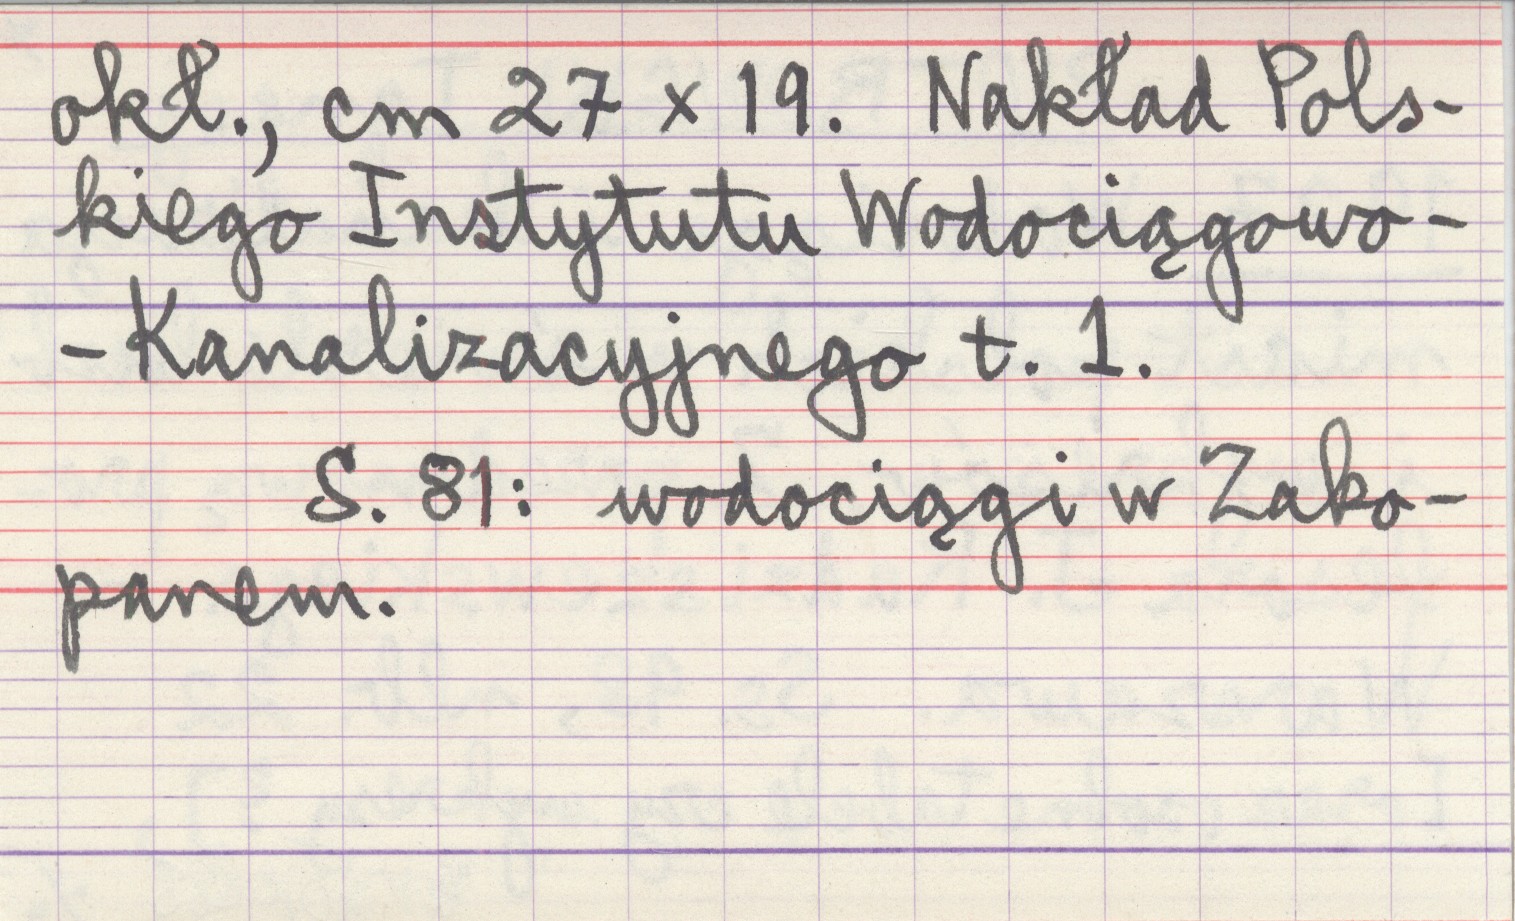 okł., cm 27 x 19. Nakład Pols-
kiego Instytutu Wodociągowo-
-Kanalizacyjnego t. 1.
S. 81: wodociągi w Zako-
panem.